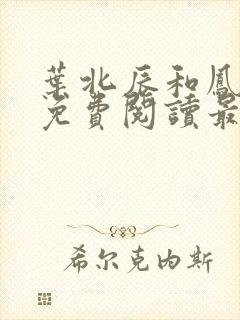 葉北辰和鳳
免費閱讀最
希尔克内斯